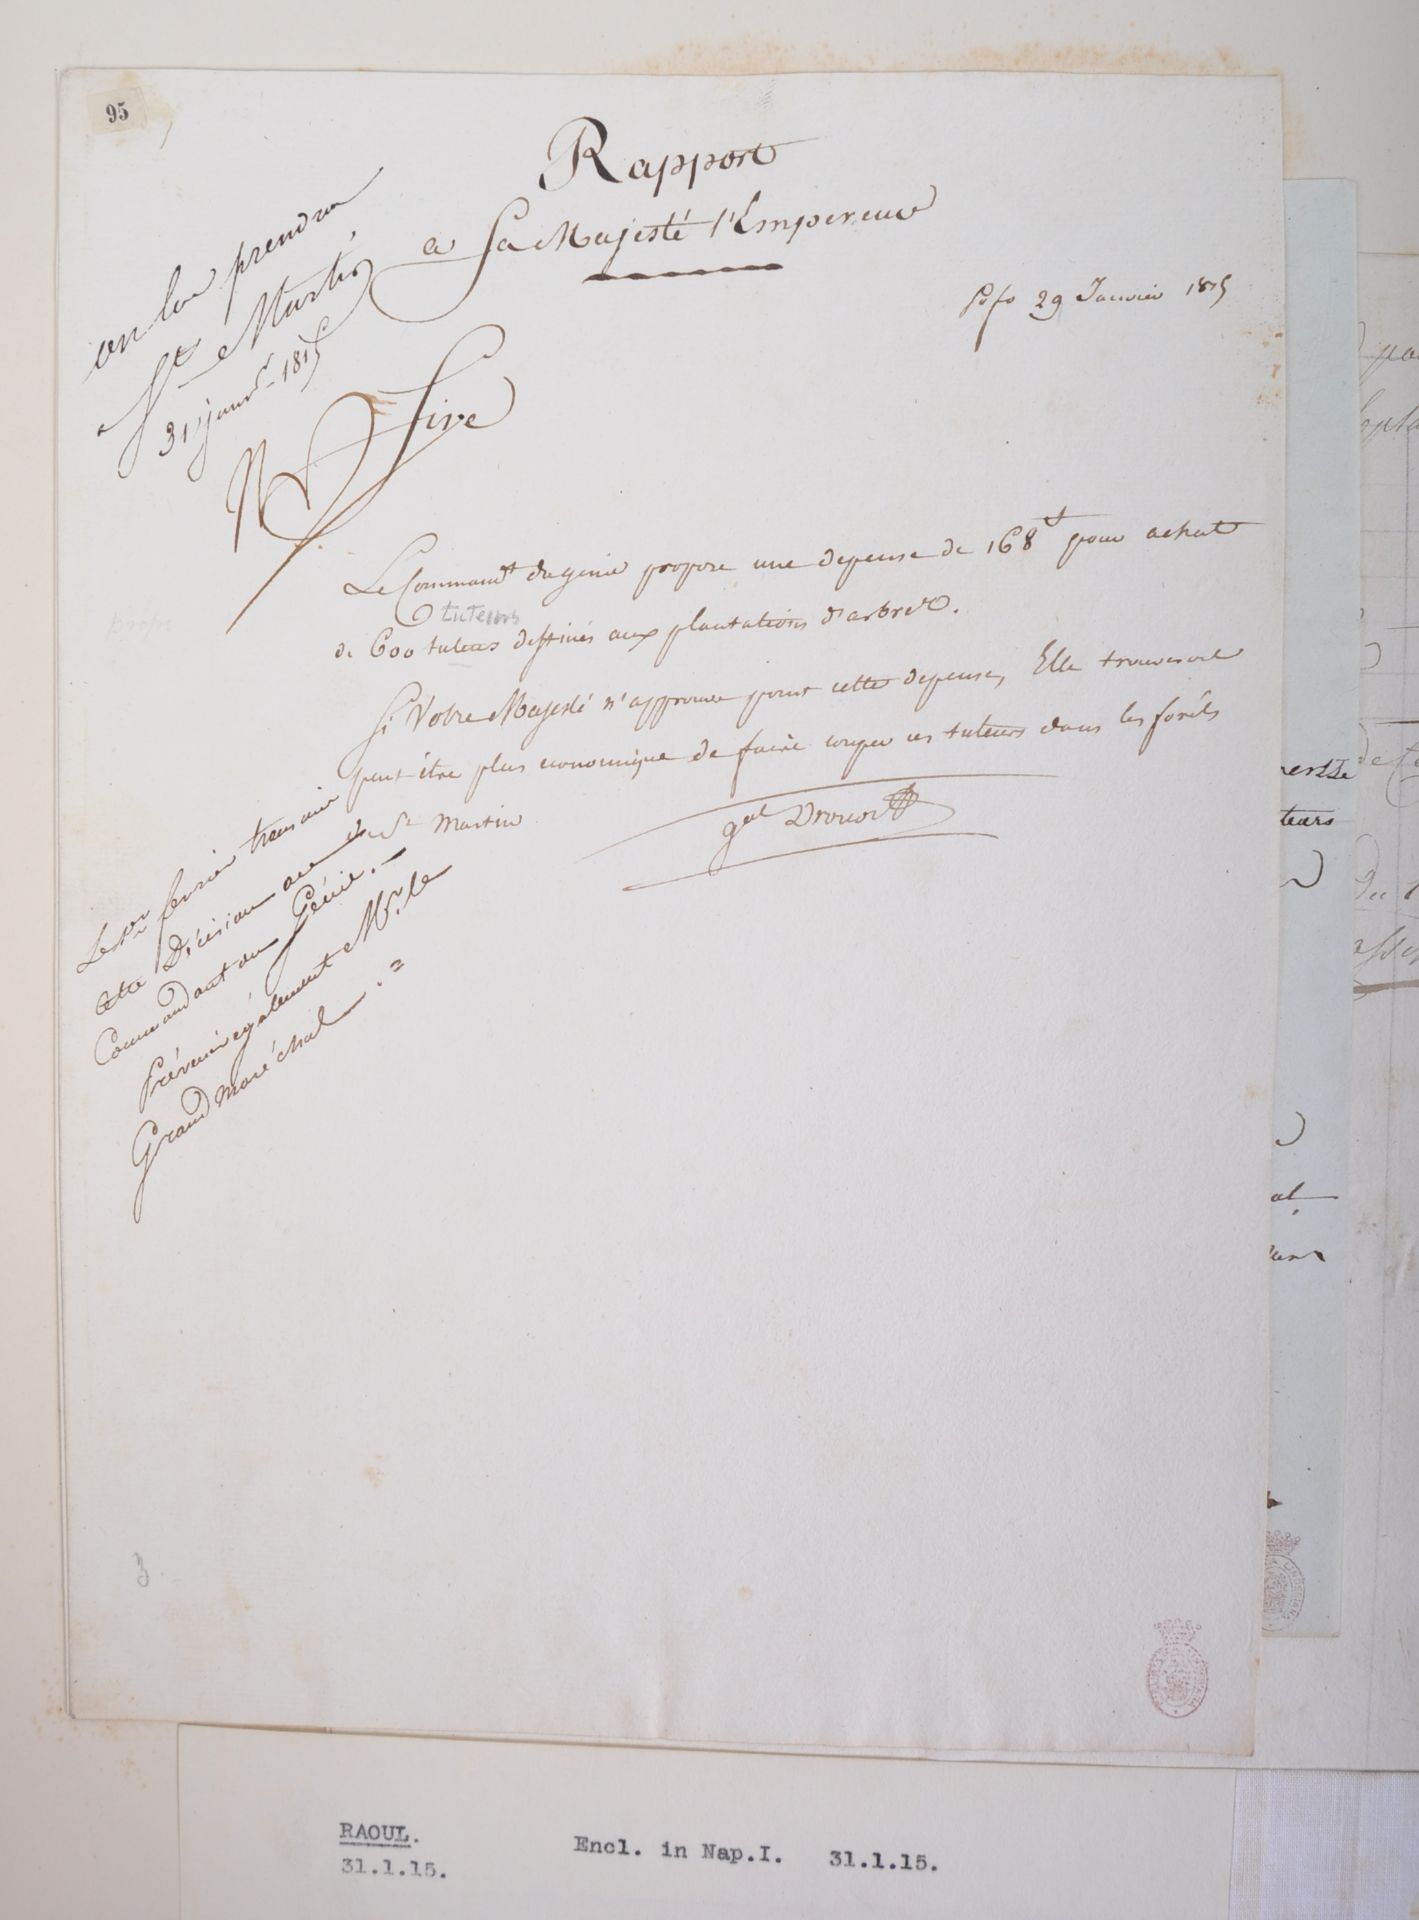 95
Rapport
a Sa Majesté l'Empereur
Pofo 29 Janvier 1815
on les prendra
St Martin,
31 janvr. 1815
Np
Sire
Le Commandt du genie propose une depense de 168 pour achat
tuteurs
de 600 tuteurs destinés aux plantations d'arbres.
Si Votre Majesté n'approuve point cette depense, Elle trouverait
peut être plus economique de faire couper ces tuteurs dans les forêts
de St Martin
gal Drouot
Le 1er fevrier transmis
cette Décision au
Commandant du Génie.
Prévenir également Mr. le
Grand maréchal
props
3
nertte
teurs
al
RAOUL.
31.1.15.
Encl. in Nap.I. 31.1.15.